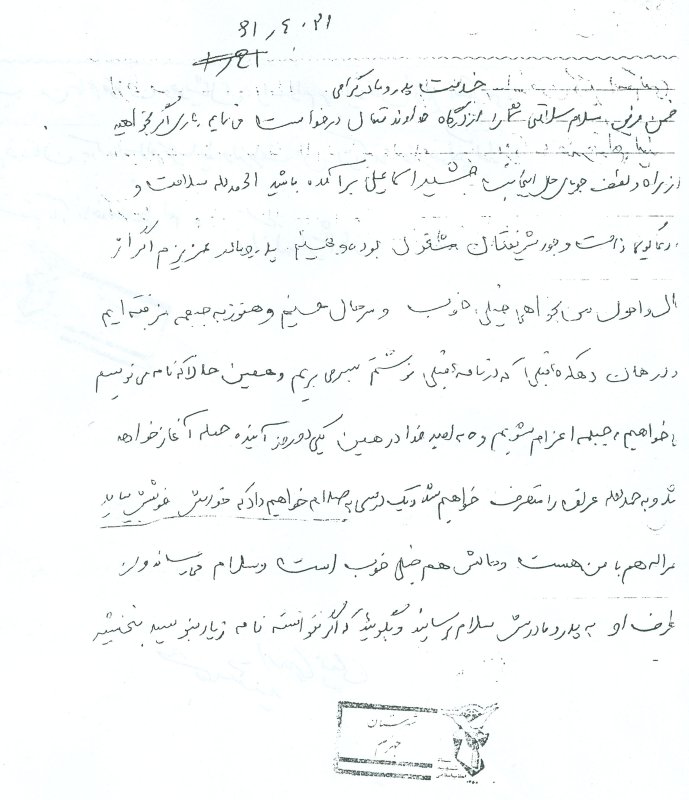 ۶۱٫۴٫۲۱
خدمت پدر و مادر گرامی
ضمن عرض سلام سلامتی شما را از درگاه خداوند متعال درخواست می نمایم باری اگر بخواهید
از راه لطف جویای حال اینجانب جمشید اسماعیلی برآمده باشید الحمدلله سلامت و
دعاگویی ذات وجود شریفتان مشغول بوده و هستیم پدر و مادر عزیزم اگر از
احوال من بخواهید خیلی خوب و سرحال هستیم و هنوز به جبهه نرفته ایم
در همان دهکده قبلی که در نامه قبلی نوشتم بسر می بریم و همین حالا که نامه می نویسم
می خواهیم به جبهه اعزام بشویم و به امید خدا در همین یکی دو روز آینده حمله آغاز خواهد
شد و به حمدلله عراق را متصرف خواهیم شد و یک درسی به صدام خواهیم داد که خودش خوشش بیاید
هم با من هست و حالش هم خیلی خوب است و سلام می رساند و از
طرف او به پدر و مادرش سلام برسانید و بگوئید که اگر نتوانسته نامه زیاد بنویسد ببخشید
جهرم